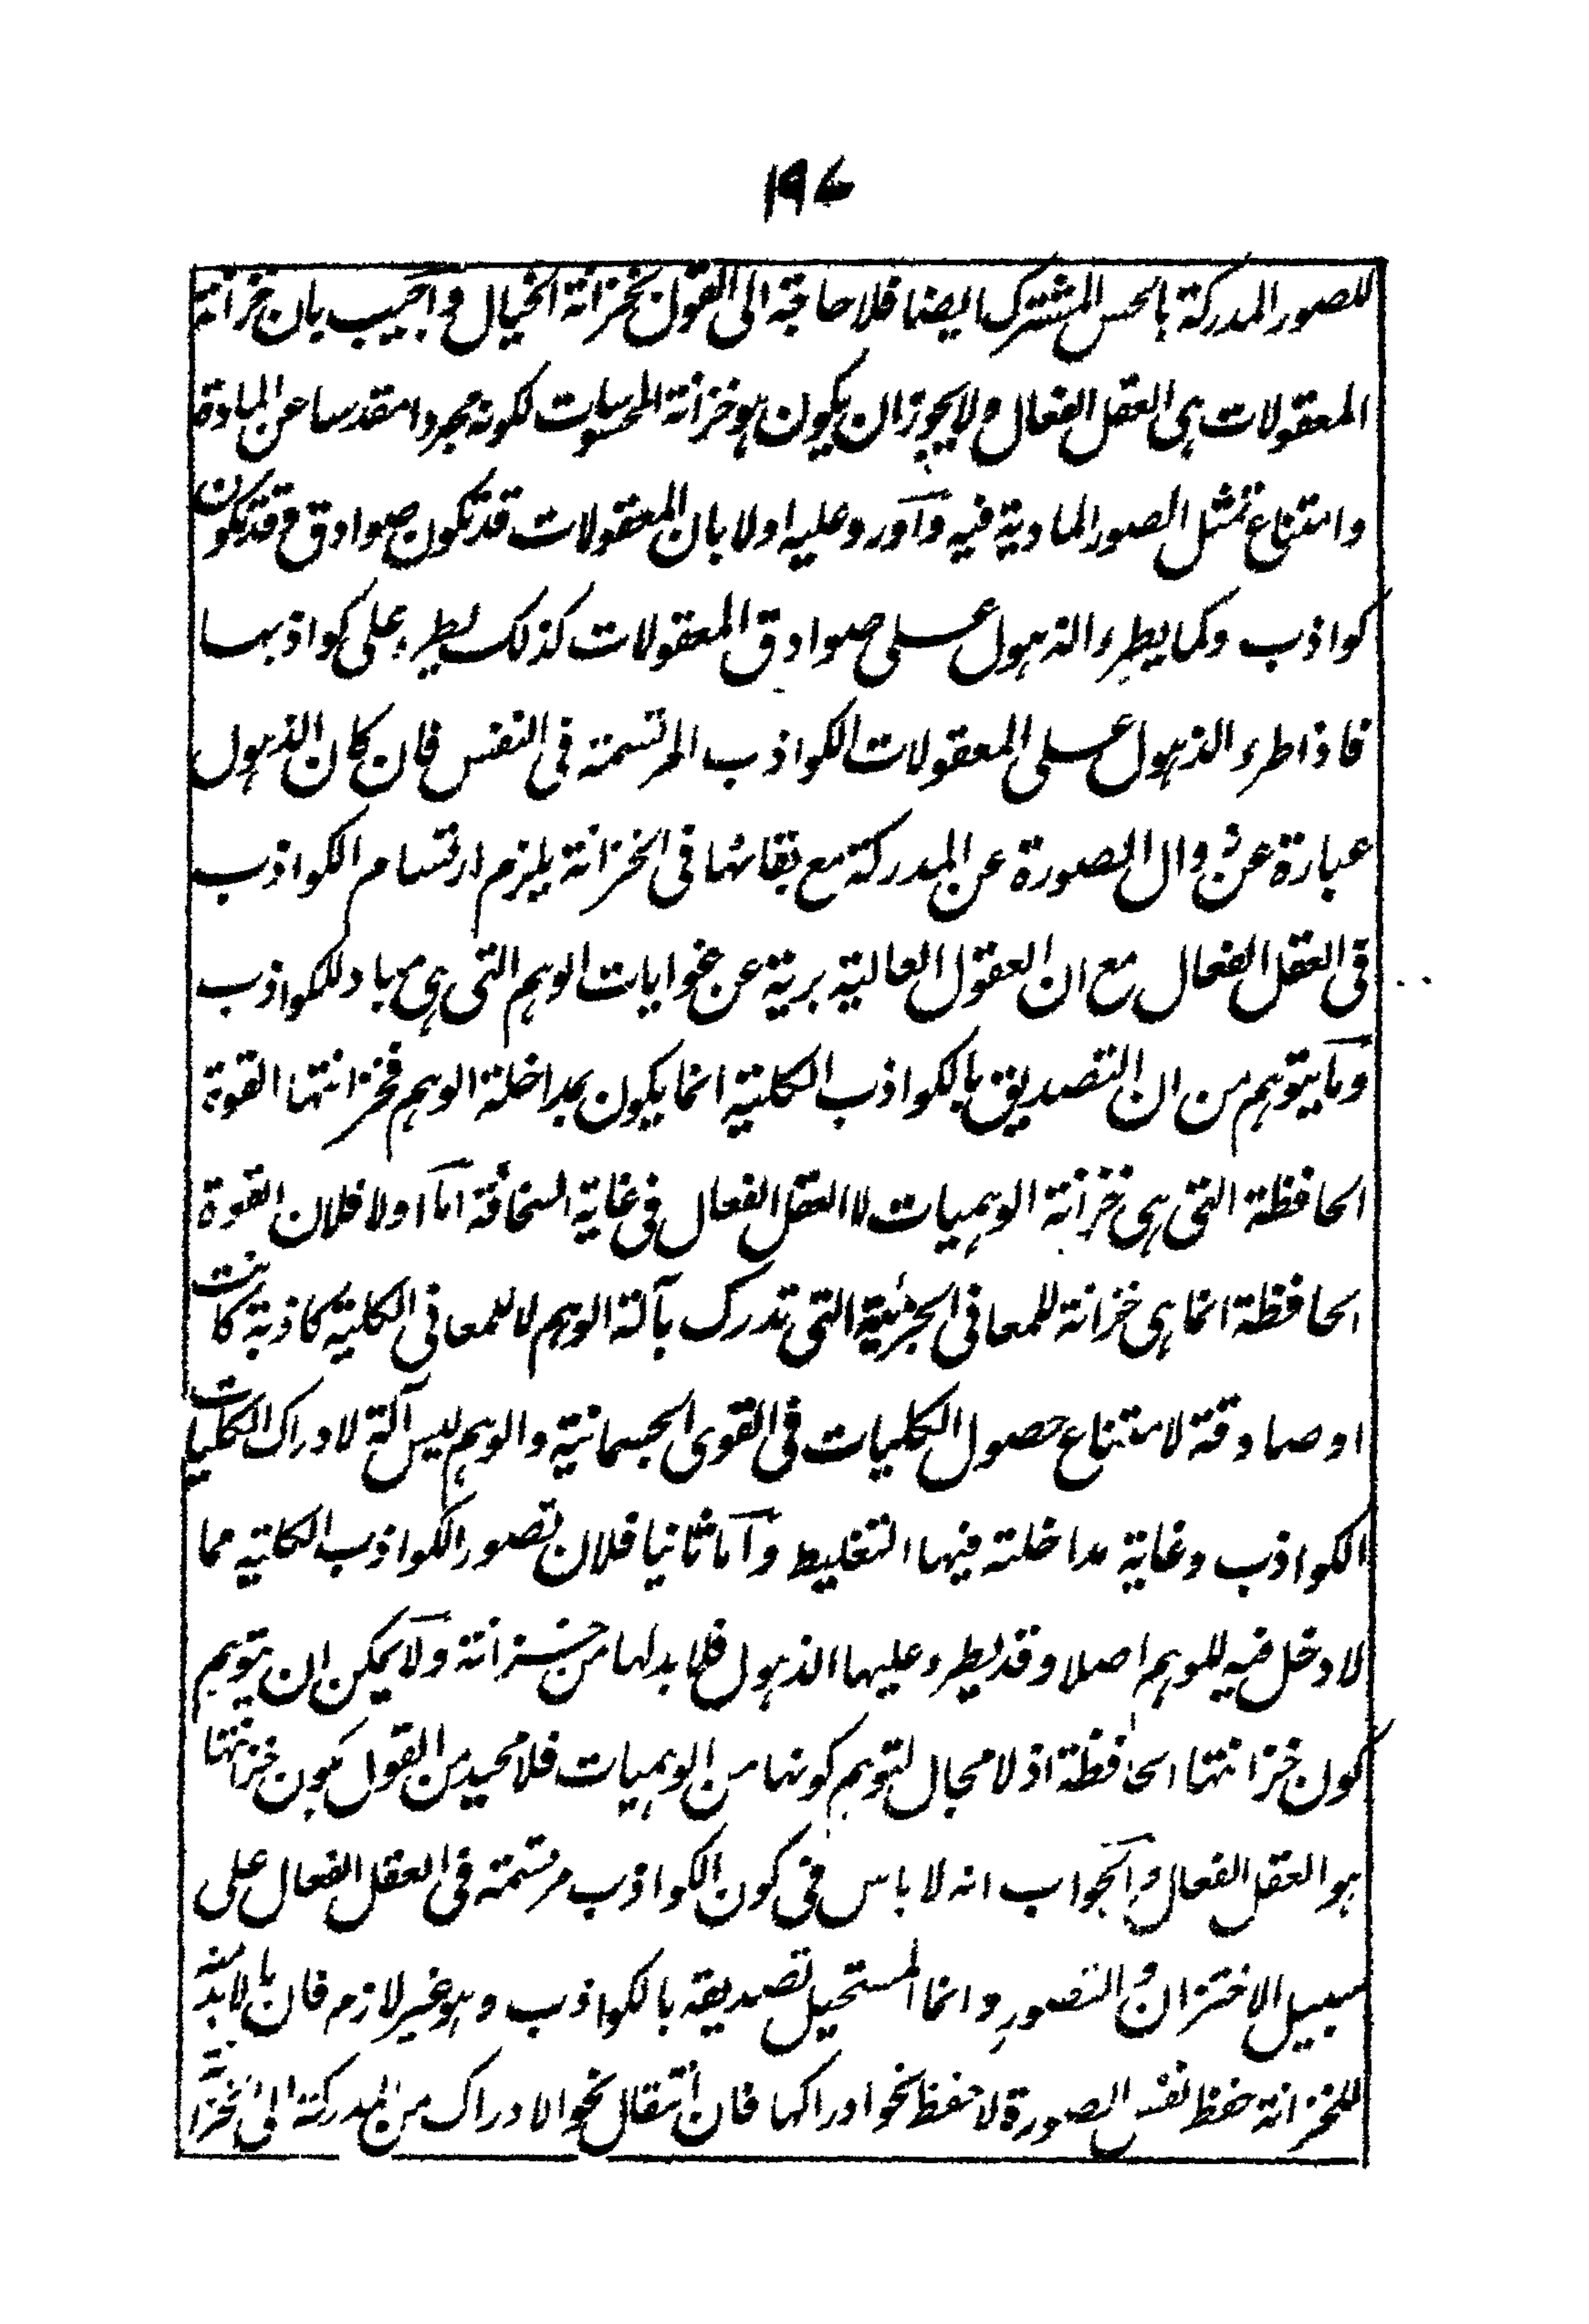 ١٩٧
للصور المدركة بالحس المشترك ايضا فلا حاجة الى القول بخزانة الخيال واجيب بان خزانة
المعقولات هى العقل الفعال ولا يجوز ان يكون هو خزانة المحسوسات لكونه مجردا مقدسا عن المادة
وامتناع تمثل الصور المادية فيه وآورد عليه اولا بان المعقولات قد تكون صوادق وقد تكون
كواذب وكما يطرء الذهول على صوادق المعقولات كذلك يطرء على كواذبها
فاذا طرء الذهول على المعقولات الكواذب المرتسمة فى النفس فان كان الذهول
عبارة عن زوال الصورة عن المدركة مع بقائها فى الخزانة يلزم ارتسام الكواذب
فى العقل الفعال مع ان العقول العالية برية عن غوايات الوهم التى هى مباد للكواذب
وما يتوهم من ان التصديق بالكواذب الكلية انما يكون بمداخلة الوهم فخزانتها القوة
الحافظة التى هى خزانة الوهميات لا العقل الفعال فى غاية السخافة اما اولا فلان القوة
الحافظة انما هى خزانة للمعانى الجزئية التى تدرك بآلة الوهم لا للمعانى الكلية كاذبة كانت
او صادقة لامتناع حصول الكليات فى القوى الجسمانية والوهم ليس آلة لادراك الكليات
الكواذب وغاية مداخلته فيها التغليط وآما ثانيا فلان تصور الكواذب الكلية مما
لا دخل فيه للوهم اصلا وقد يطرء عليها الذهول فلا بد لها من خزانة ولا يمكن ان يتوهم
كون خزانتها الحافظة اذ لا مجال لتوهم كونها من الوهميات فلا محيد من القول بكون خزانتها
هو العقل الفعال والجواب انه لا باس فى كون الكواذب مرتسمة فى العقل الفعال على
سبيل الاختزان والتصور وانما المستحيل تصديقه بالكواذب وهو غير لازم فان ما لا بد منه
للخزانة حفظ نفس الصورة لا حفظ نحو ادراكها فان انتقال نحو الادراك من المدركة الى الخزانة